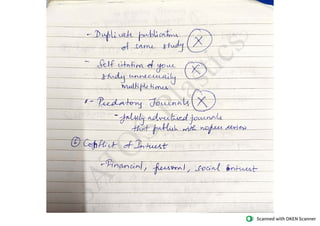 - Duplicate publication
of same study (X)
- Self citation of your (X)
study unnecessarily
multiple times
- Predatory Journals (X)
- falsely advertised journals
that publish with no peer review
⑥ Conflict of Interest
- Financial, personal, social interest
Scanned with OKEN Scanner